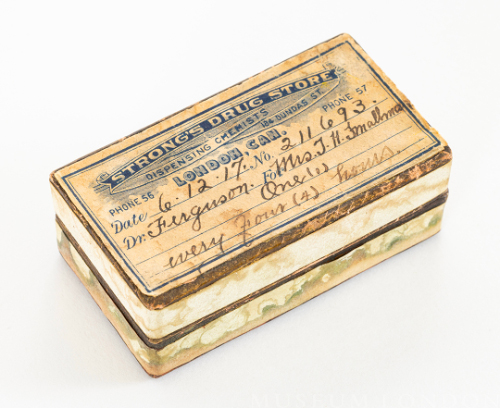 STRONG'S DRUG STORE
DISPENSING CHEMISTS
184 DUNDAS ST.
LONDON, CAN.
PHONE 56 PHONE 57
Date 6.12.17. No. 211693.
Dr. Ferguson. For Mrs. T. H. Smallman
One (1)
every four (4) hours.